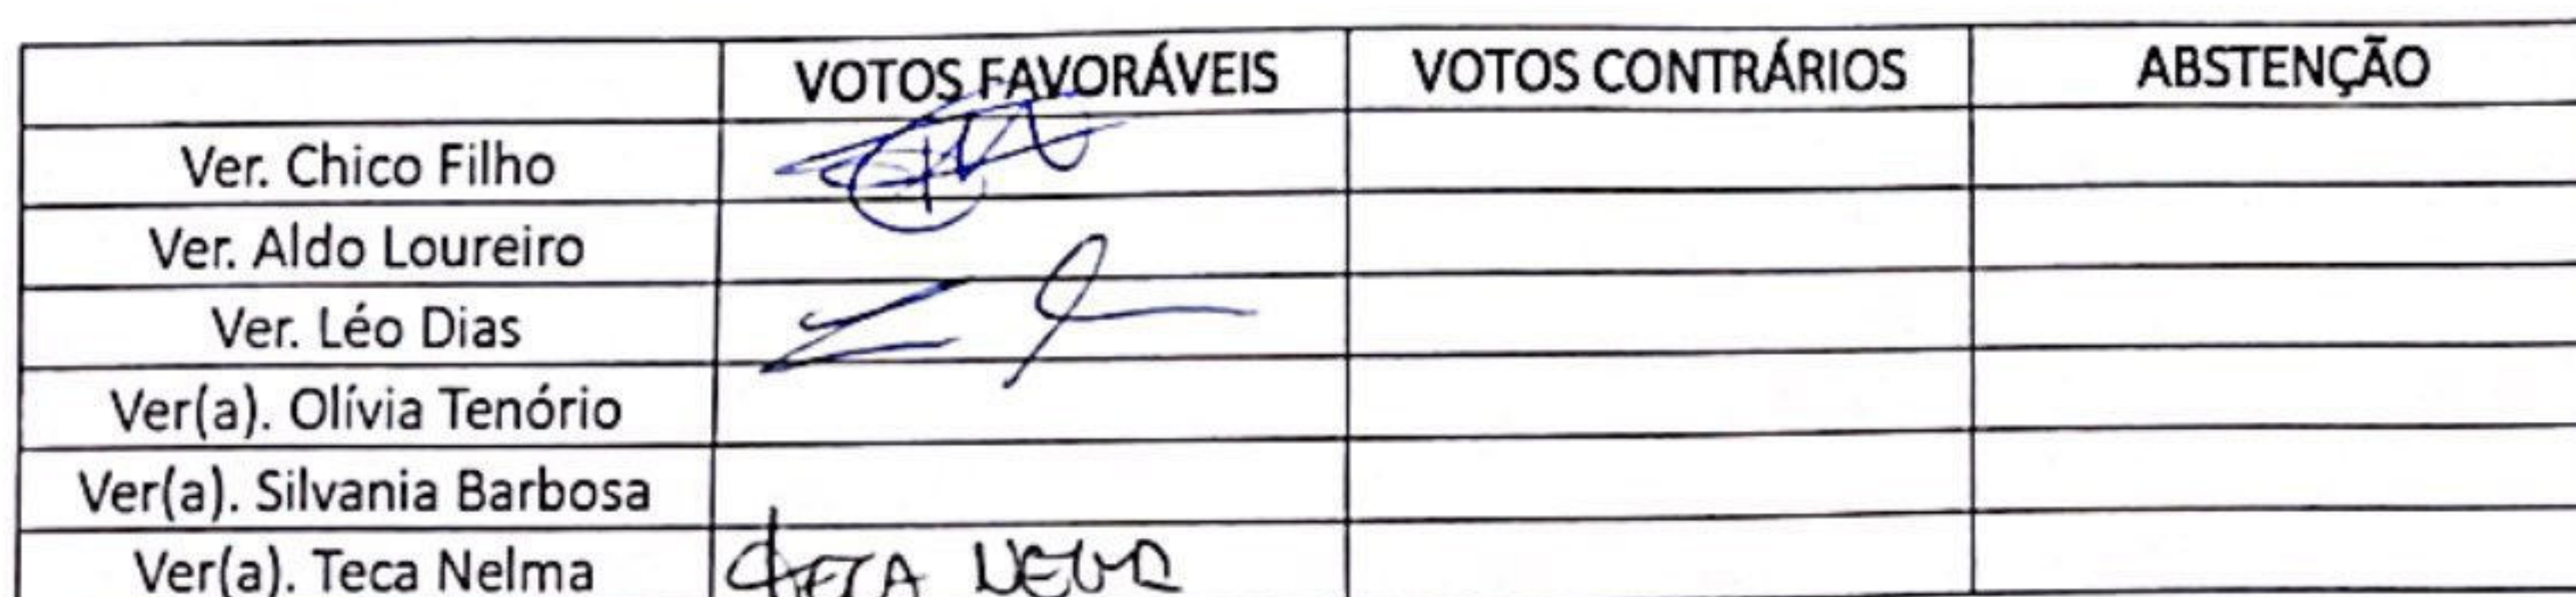 VOTOS FAVORÁVEIS VOTOS CONTRÁRIOS ABSTENÇÃO
Ver. Chico Filho
Ver. Aldo Loureiro
Ver. Léo Dias
Ver(a). Olívia Tenório
Ver(a). Silvania Barbosa
Ver(a). Teca Nelma